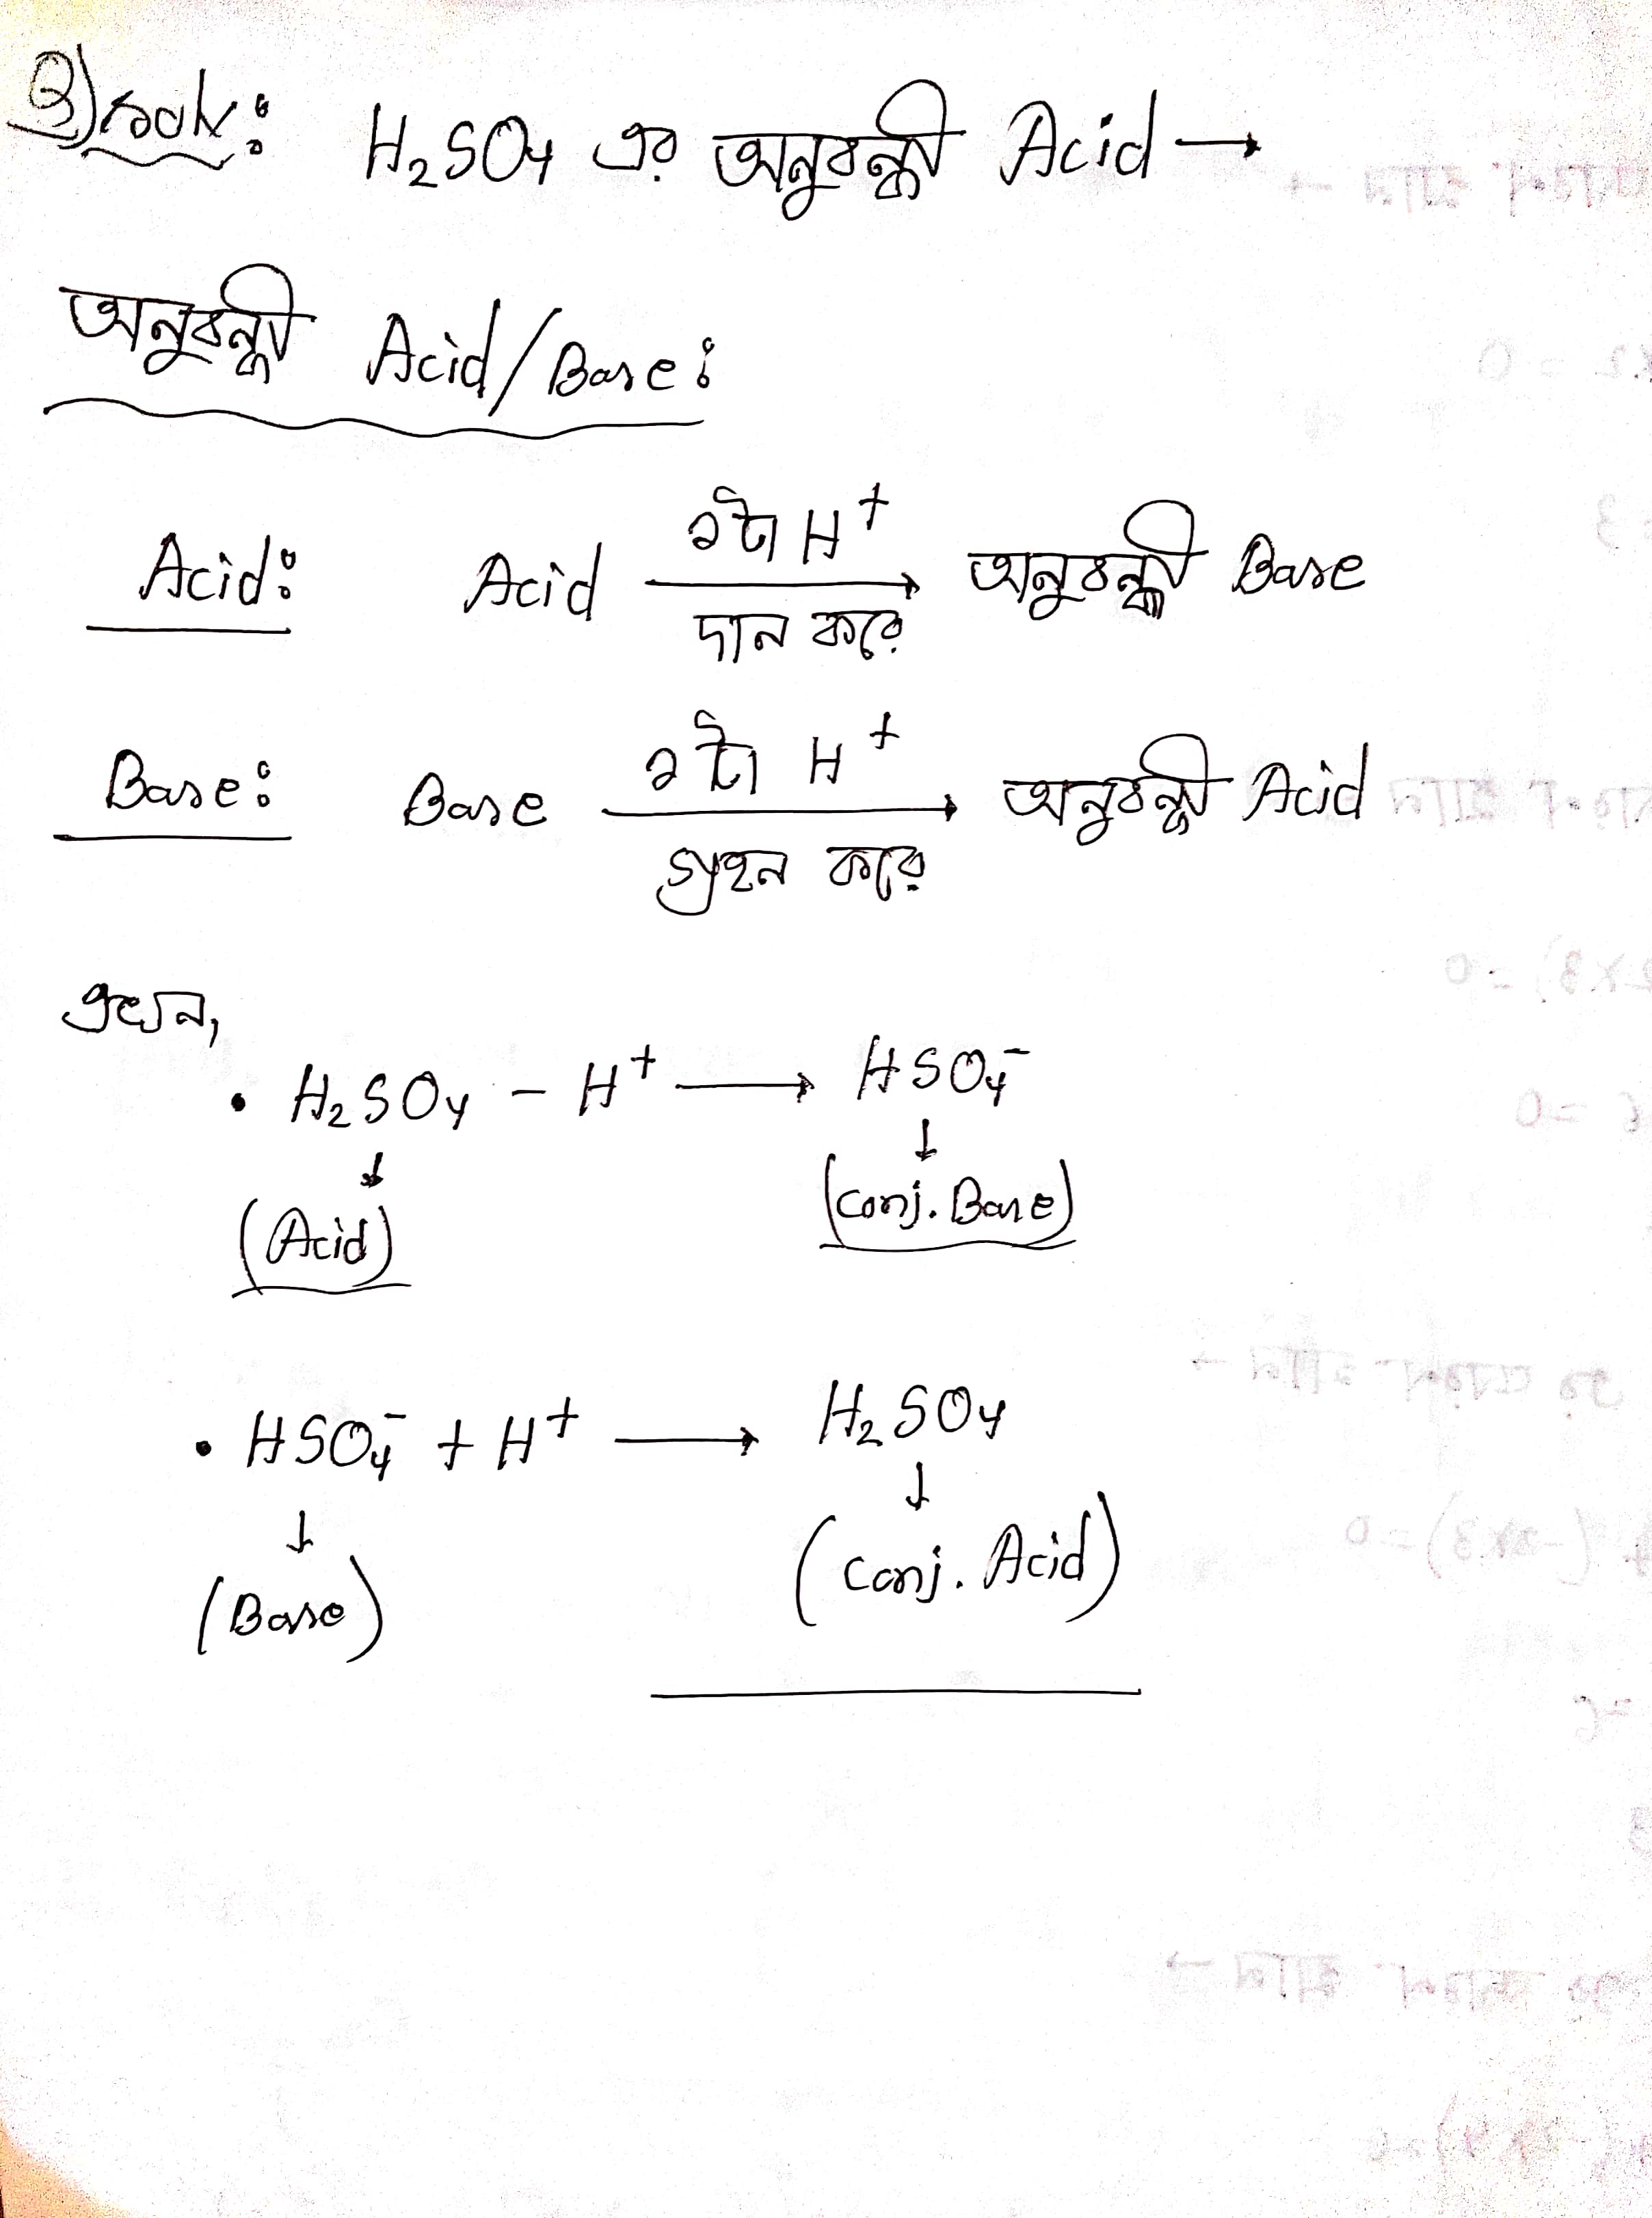 H₂SO₄ এর অনুবন্ধী Acid →
অনুবন্ধী Acid/Base:
Acid: Acid ১টা H⁺ দান করে → অনুবন্ধী Base
Base: Base ১টা H⁺ গ্রহন করে → অনুবন্ধী Acid
এখন,
• H₂SO₄ - H⁺ → HSO₄⁻
↓ ↓
(Acid) (Conj. Base)
• HSO₄⁻ + H⁺ → H₂SO₄
↓ ↓
(Base) (Conj. Acid)